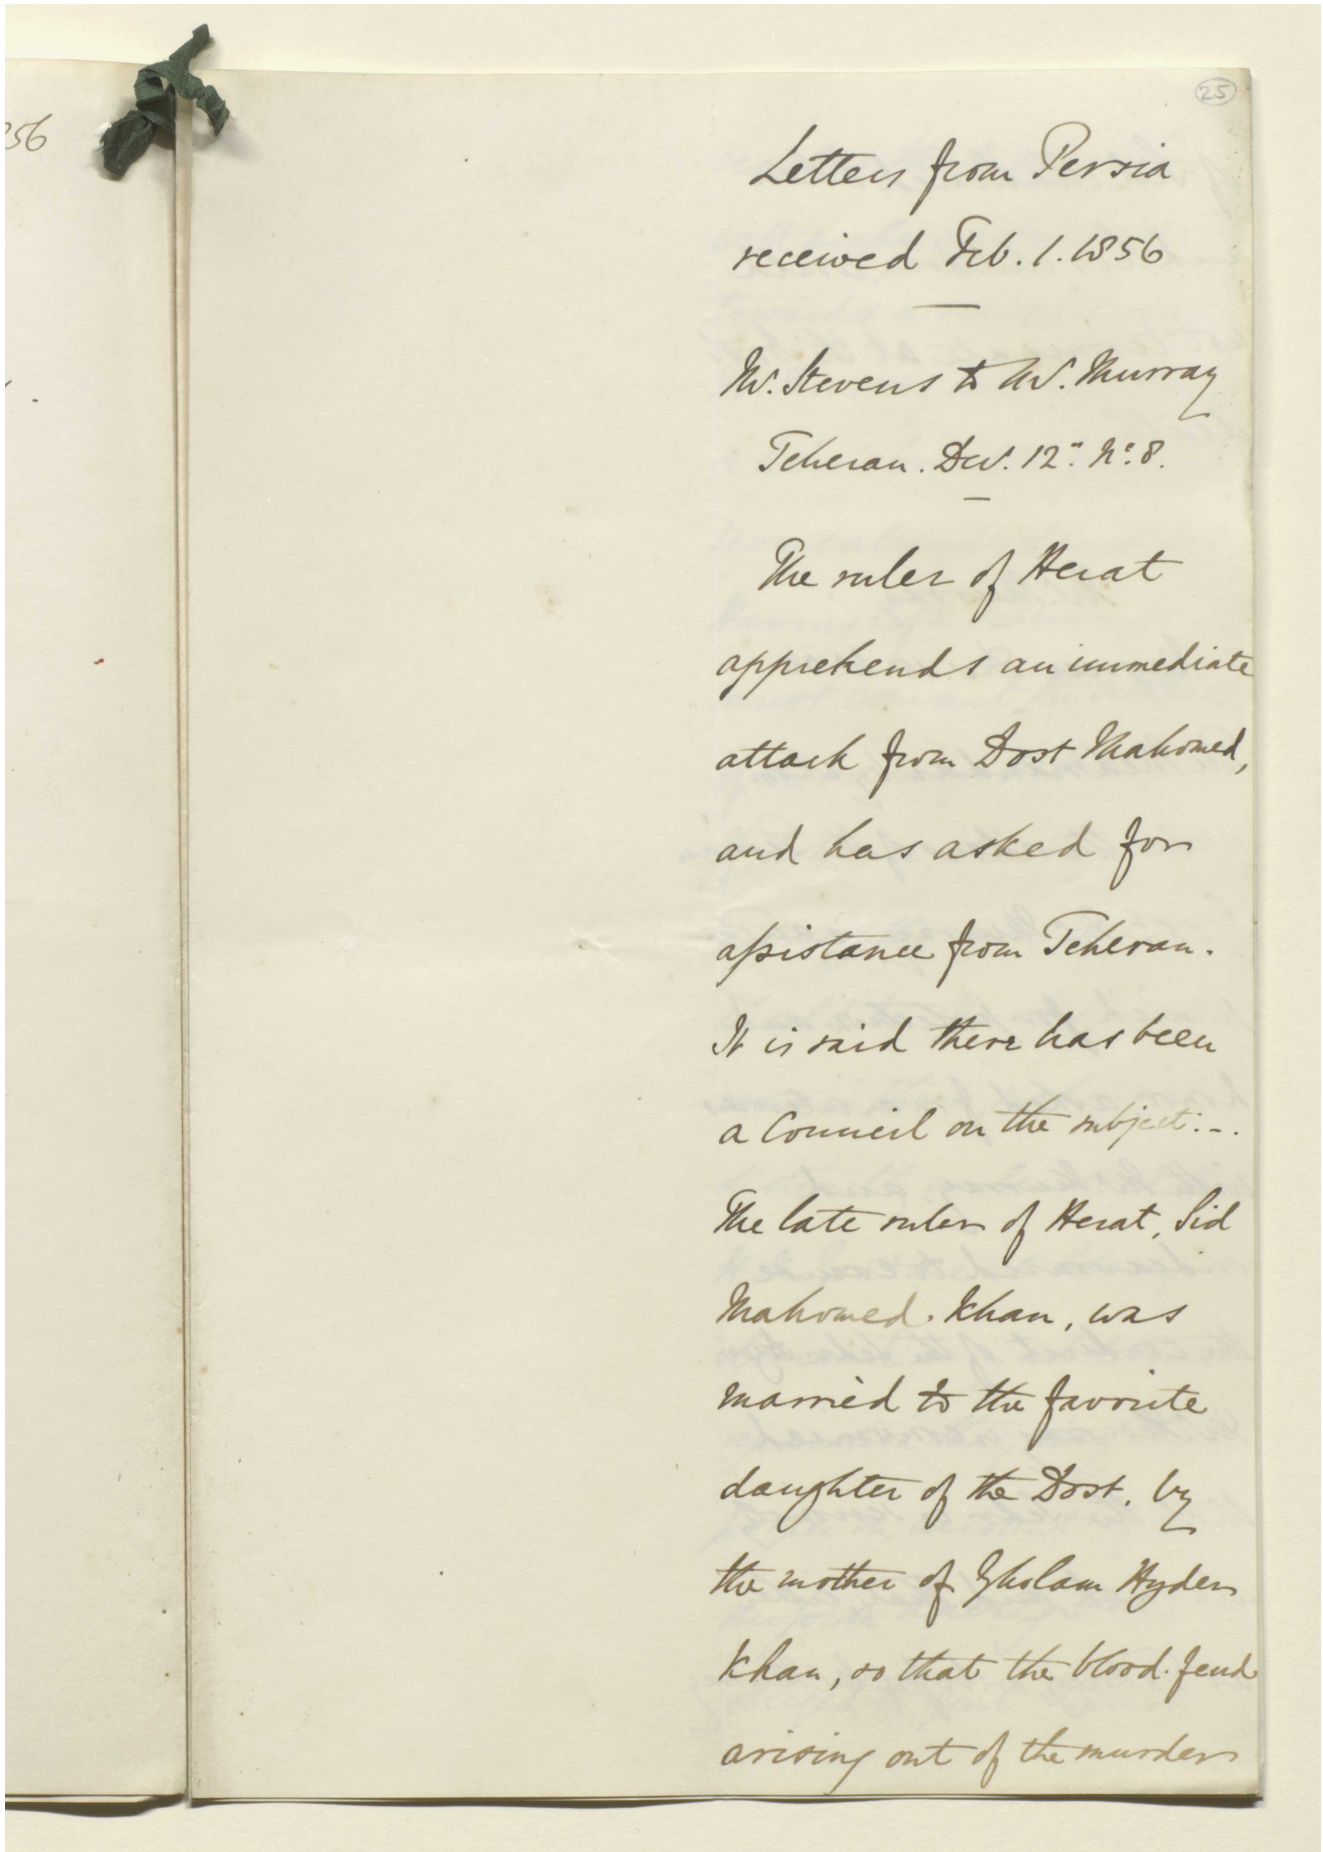 256
25
Letters from Persia
received Feb. 1. 1856
Mr. Stevens to Mr. Murray
Teheran. Decr. 12". No. 8.
The ruler of Herat
apprehends an immediate
attack from Dost Mahomed,
and has asked for
assistance from Teheran.
It is said there has been
a Council on the subject:-.
The late ruler of Herat, Sid
Mahomed. Khan, was
married to the favorite
daughter of the Dost, by
the mother of Gholam Hyder
Khan, so that the blood-feud
arising out of the murder